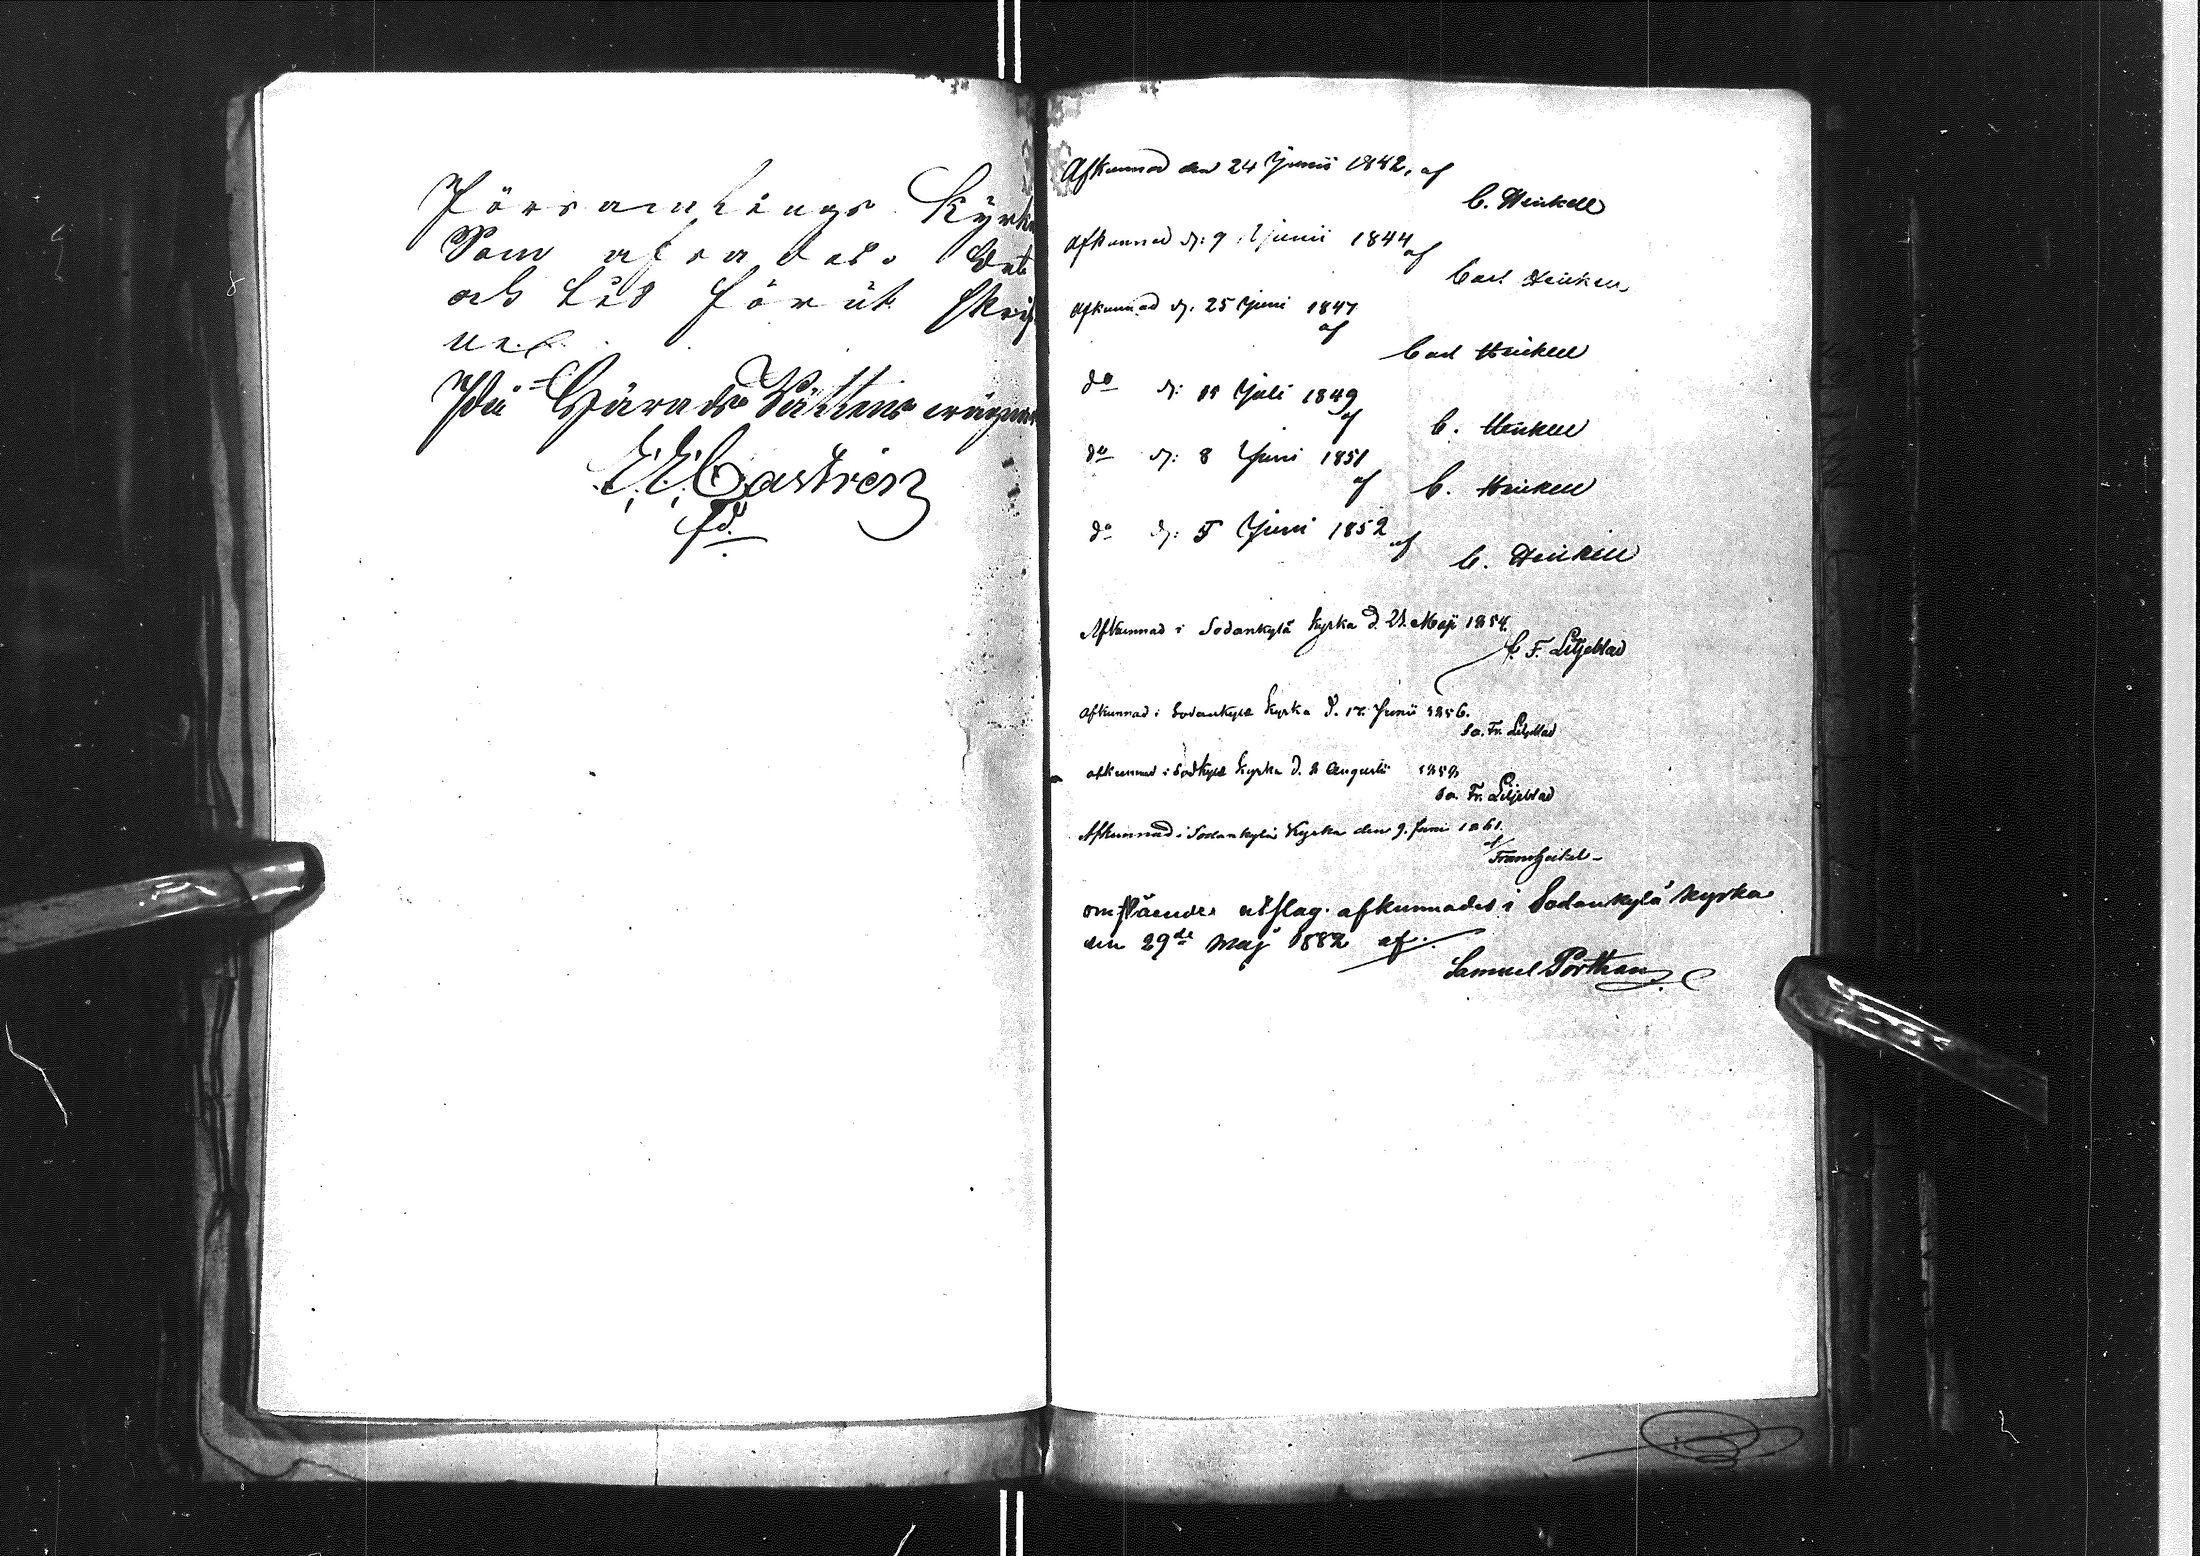 Församlings Kyrk
Som afsades. Dat
och tid förut skrif
ne/.
På Härads Rättens wägnar
E. E. Castrén
Afkunnad den 24 Junii 1842, af
C. Heickell
Afkunnad d: 9 Junii 1844
af
Carl Heickell
Afkunnad d. 25 Juni 1847
af
Carl Heickell
do d: 15 Juli 1849
af
C. Heickell
do d: 8 Juni 1851
af
C. Heickell
do d: 5 Juni 1852
af
C. Heickell
Afkunnad i Sodankylä kyrka d. 21. Maji 1854.
C. F. Liljeblad
Afkunnad i Sodankylä kyrka d. 15. Junii 1856.
Fr. Liljeblad
afkunnad i Sodkylä kyrka d. 8 Augusti 1858
Fr. Liljeblad
Afkunnad i Sodankylä Kyrka den 9. Juni 1861.
af
Frans Heikel
omstående utslag afkunnades i Sodankylä kyrka
den 29de Maj 1882 af.
Samuel Pörthan